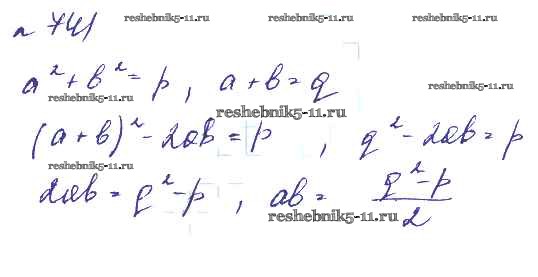 № 741 reshebnik5-11.ru reshebnik5-11.ru
a² + b² = p, a + b = q
reshebnik5-11.ru reshebnik5-11.ru reshebnik5-11.ru
(a + b)² - 2ab = p, q² - 2ab = p
reshebnik5-11.ru
2ab = q² - p, ab = (q² - p)/2
reshebnik5-11.ru